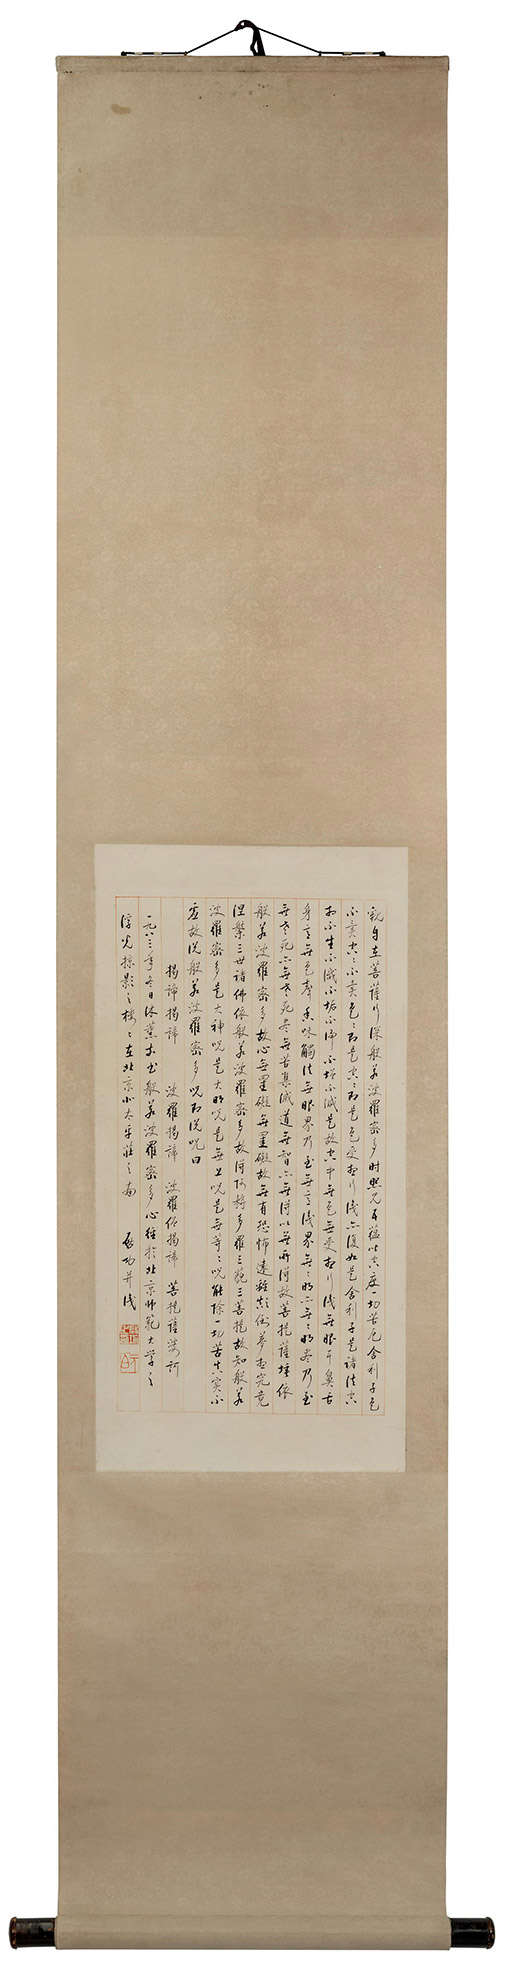 觀自在菩薩行深般若波羅密多時照見五蘊皆空度一切苦厄舍利子色
不異空〻不異色〻即是空〻即是色受想行識亦復如是舍利子是諸法空
相不生不滅不垢不淨不增不減是故空中無色無受想行識無眼耳鼻舌
身意無色聲香味觸法無眼界乃至無意識界無〻明亦無〻明盡乃至
無老死亦無老死盡無苦集滅道無智亦無得以無所得故菩提薩埵依
般若波羅密多故心無罣礙無罣礙故無有恐怖遠離顛倒夢想究竟
涅槃三世諸佛依般若波羅密多故得阿耨多羅三藐三菩提故知般若
波羅密多是大神咒是大明咒是無上咒是無等〻咒能除一切苦真實不
虛故說般若波羅密多咒即說咒曰
揭諦揭諦 波羅揭諦 波羅僧揭諦 菩提薩婆訶
一九八三年冬日沐薰書般若波羅密多心經於北京師範大學之
浮光掠影之樓〻在北京小太平莊之南 啟功并識